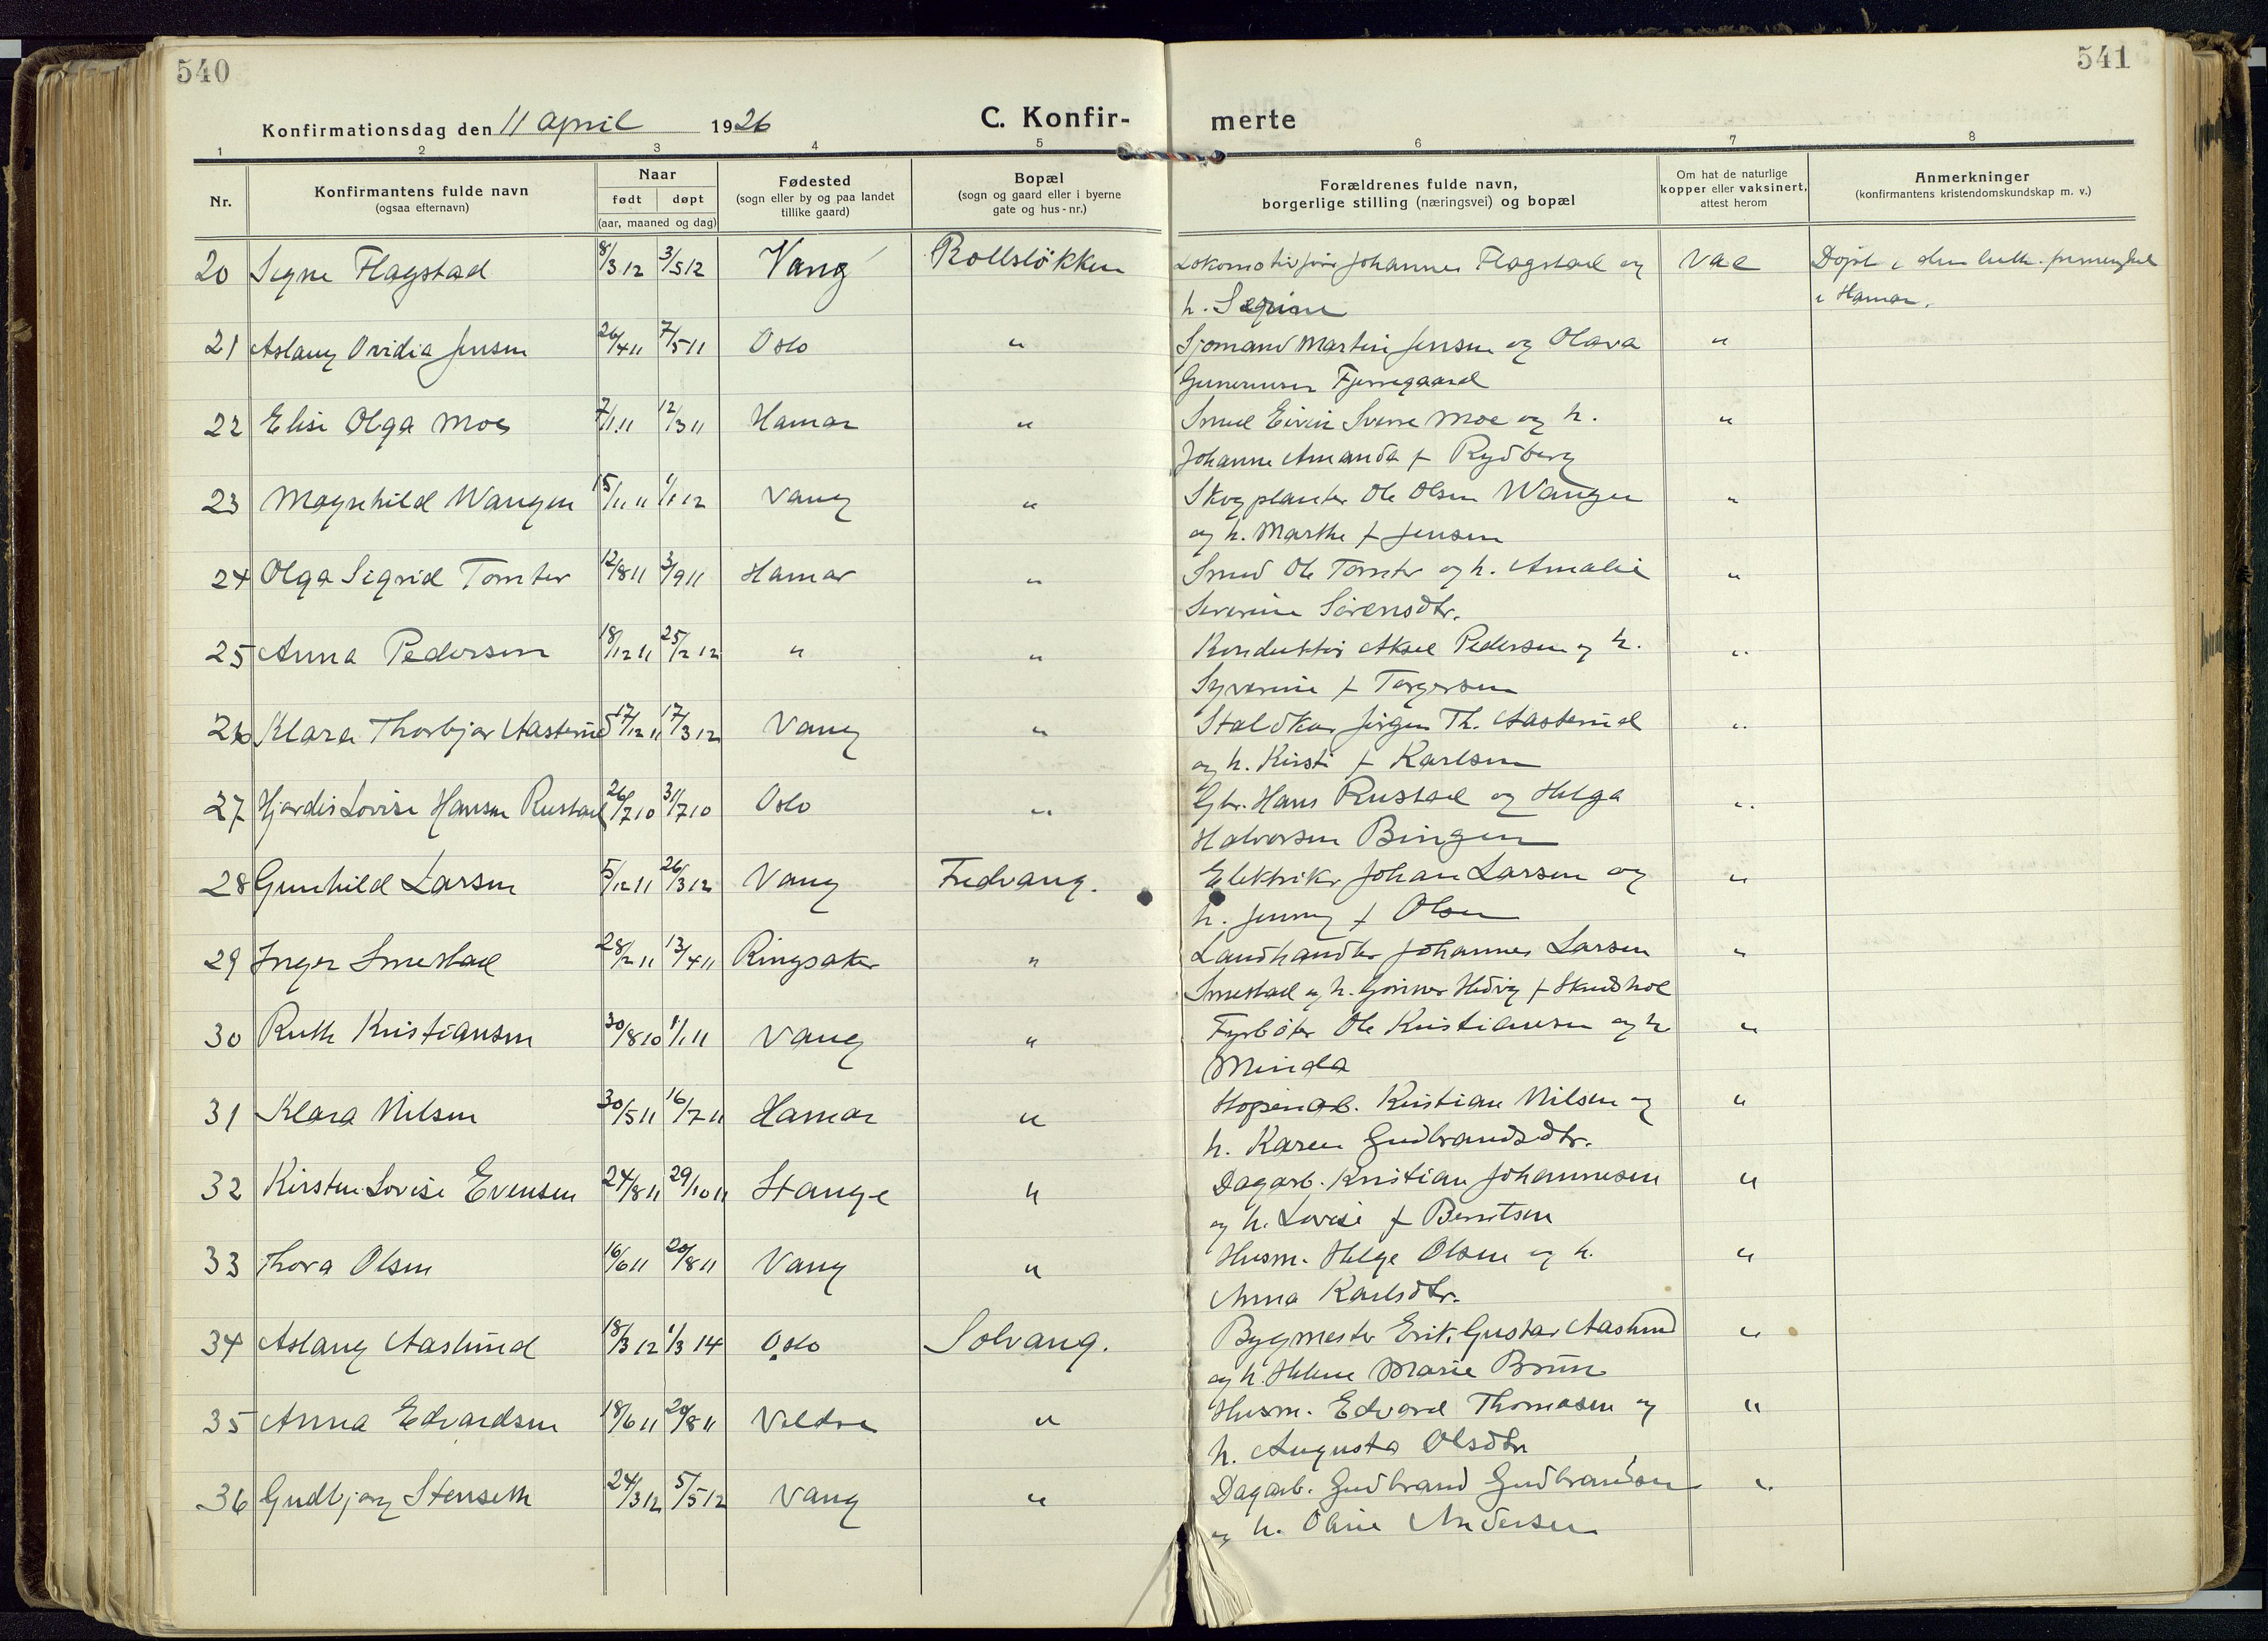 540
541
Konfirmationsdag den 11 april 1926
C. Konfir-
merte
1 2 3 4 5 6 7 8
Nr.
Konfirmantens fulde navn
(ogsaa efternavn)
Naar
født døpt
(aar, maaned og dag)
Fødested
(sogn eller by og paa landet
tillike gaard)
Bopæl
(sogn og gaard eller i byerne
gate og hus-nr.)
Forældrenes fulde navn,
borgerlige stilling (næringsvei) og bopæl
Om hat de naturlige
kopper eller vaksinert,
attest herom
Anmerkninger
(konfirmantens kristendomskundskap m. v.)
20 Signe Flagstad 8/3 12 3/5 12 Vang Rollsløkken Lokomotivfører Johannes Flagstad og Vac Døpt i den luth. frimenighet
h. Segrine i Hamar.
21 Aslaug Ovidia Jensen 26/4 11 7/5 11 Oslo " Sjømand Martin Jensen og Olava "
Gunerusen Fjerregaard
22 Elise Olga Moe 7/1 11 12/3 11 Hamar " Smed Eivin Sverre Moe og h. "
Johanne Amanda f Rydberg
23 Magnhild Wangen 15/11 11 1/1 12 Vang " Skogplanter Ole Olsen Wangen "
og h. Marthe f Jensen
24 Olga Sigrid Tomter 12/8 11 3/9 11 Hamar " Smed Ole Tomter og h. Amalie "
Severine Sørensdtr.
25 Anna Pedersen 18/12 11 25/2 12 " " Konduktør Aksel Pedersen og h. "
Syverine f Torgersen
26 Klara Thorbjør Aasterud 17/12 11 17/3 12 Vang " Staldkar Jørgen Th. Aasterud "
og h. Kirsti f Karlsen
27 Hjørdis Lovise Hansen Rustad 26/7 10 31/7 10 Oslo " Gbr. Hans Rustad og Helga "
Halvorsen Bingen
28 Gunhild Larsen 5/12 11 26/3 12 Vang Fredvang. Elektriker Johan Larsen og "
h. Jenny f Olsen
29 Inger Smestad 28/2 11 13/4 11 Ringsaker " Landhandler Johannes Larsen "
Smestad og h. Hedvig f Skudshol
30 Ruth Kristiansen 30/8 10 1/1 11 Vang " Fyrbøter Ole Kristiansen og h "
Minda
31 Klara Nilsen 30/5 11 16/7 11 Hamar " Kristian Nilsen og "
h. Karen Gudbrandsdtr.
32 Kirsten Lovise Evensen 24/8 11 29/10 11 Stange " Dagarb. Kristian Johannesen "
og h. Lovise f Berntsen
33 Thora Olsen 16/6 11 20/8 11 Vang " Husm. Helge Olsen og h. "
Anna Karlsdtr.
34 Aslaug Aaslund 18/3 12 1/3 14 Oslo Solvang. Bygmester Erik Gustav Aaslund "
og h. Helene Marie Brun
35 Anna Edvardsen 18/6 11 20/8 11 Veldre " Husm. Edvard Thomasen og "
h. Augusta Olsdtr
36 Gudbjørg Stenseth 24/3 12 5/5 12 Vang " Dagarb. Gudbrand Gudbrandsen "
og h. Oline Andersen